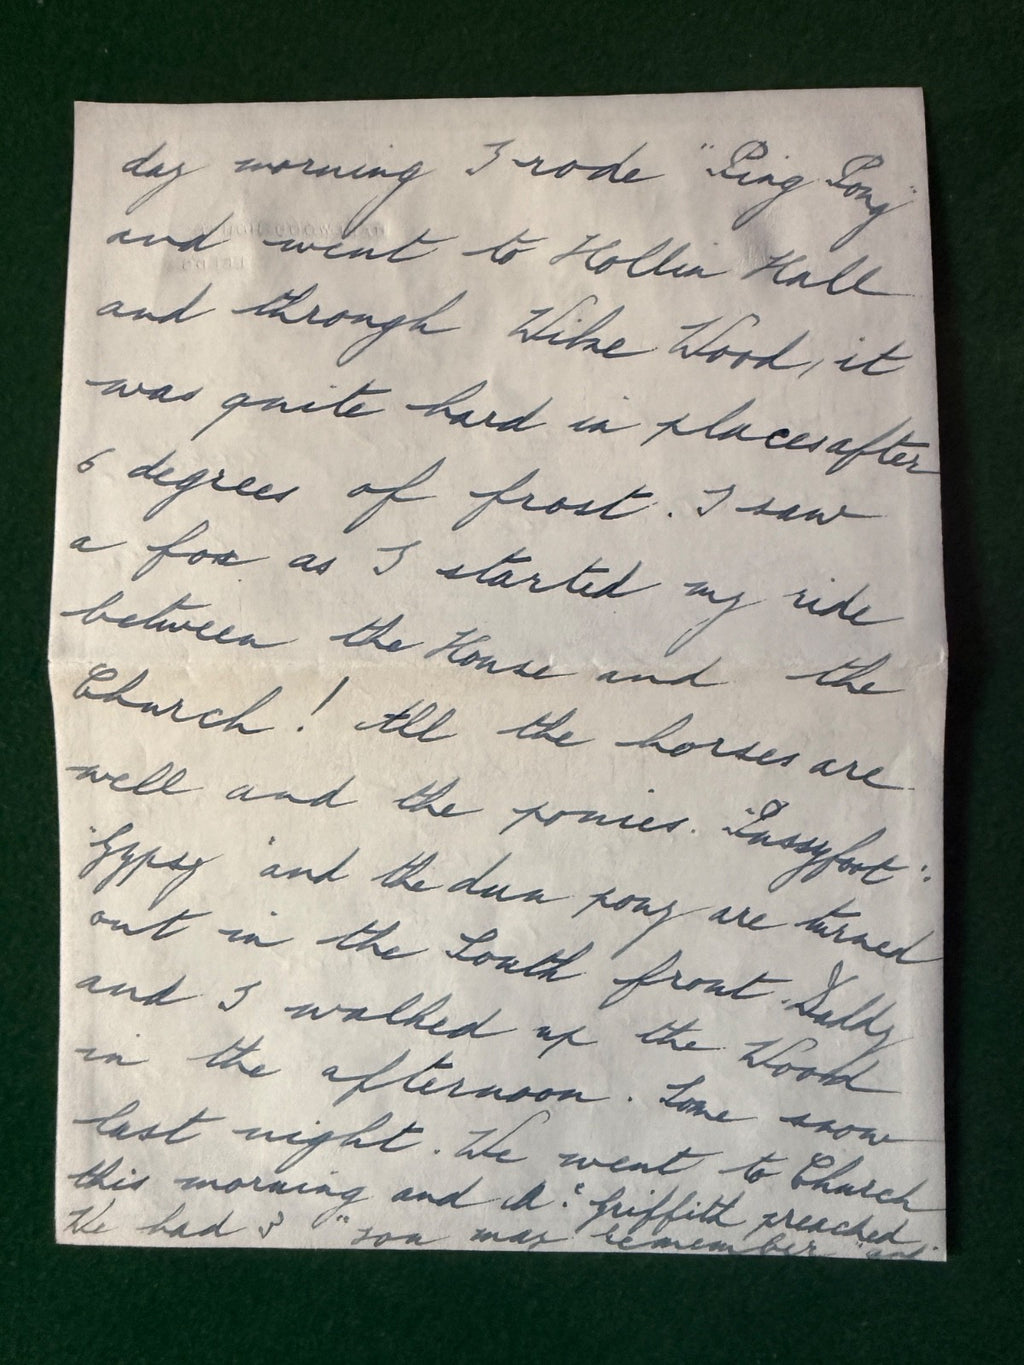 day morning I rode "Ping Pong"
and went to Hollin Hall
and through Wilne Wood, it
was quite hard in places after
6 degrees of frost. I saw
a fox as I started my ride
between the House and the
Church! All the horses are
well and the ponies. "Pussyfoot".
"Gypsy" and the dun pony are turned
out in the South front. Daddy
and I walked up the Wood
in the afternoon. Some snow
last night. We went to Church
this morning and Griffith preached
We had 3 "you may remember"